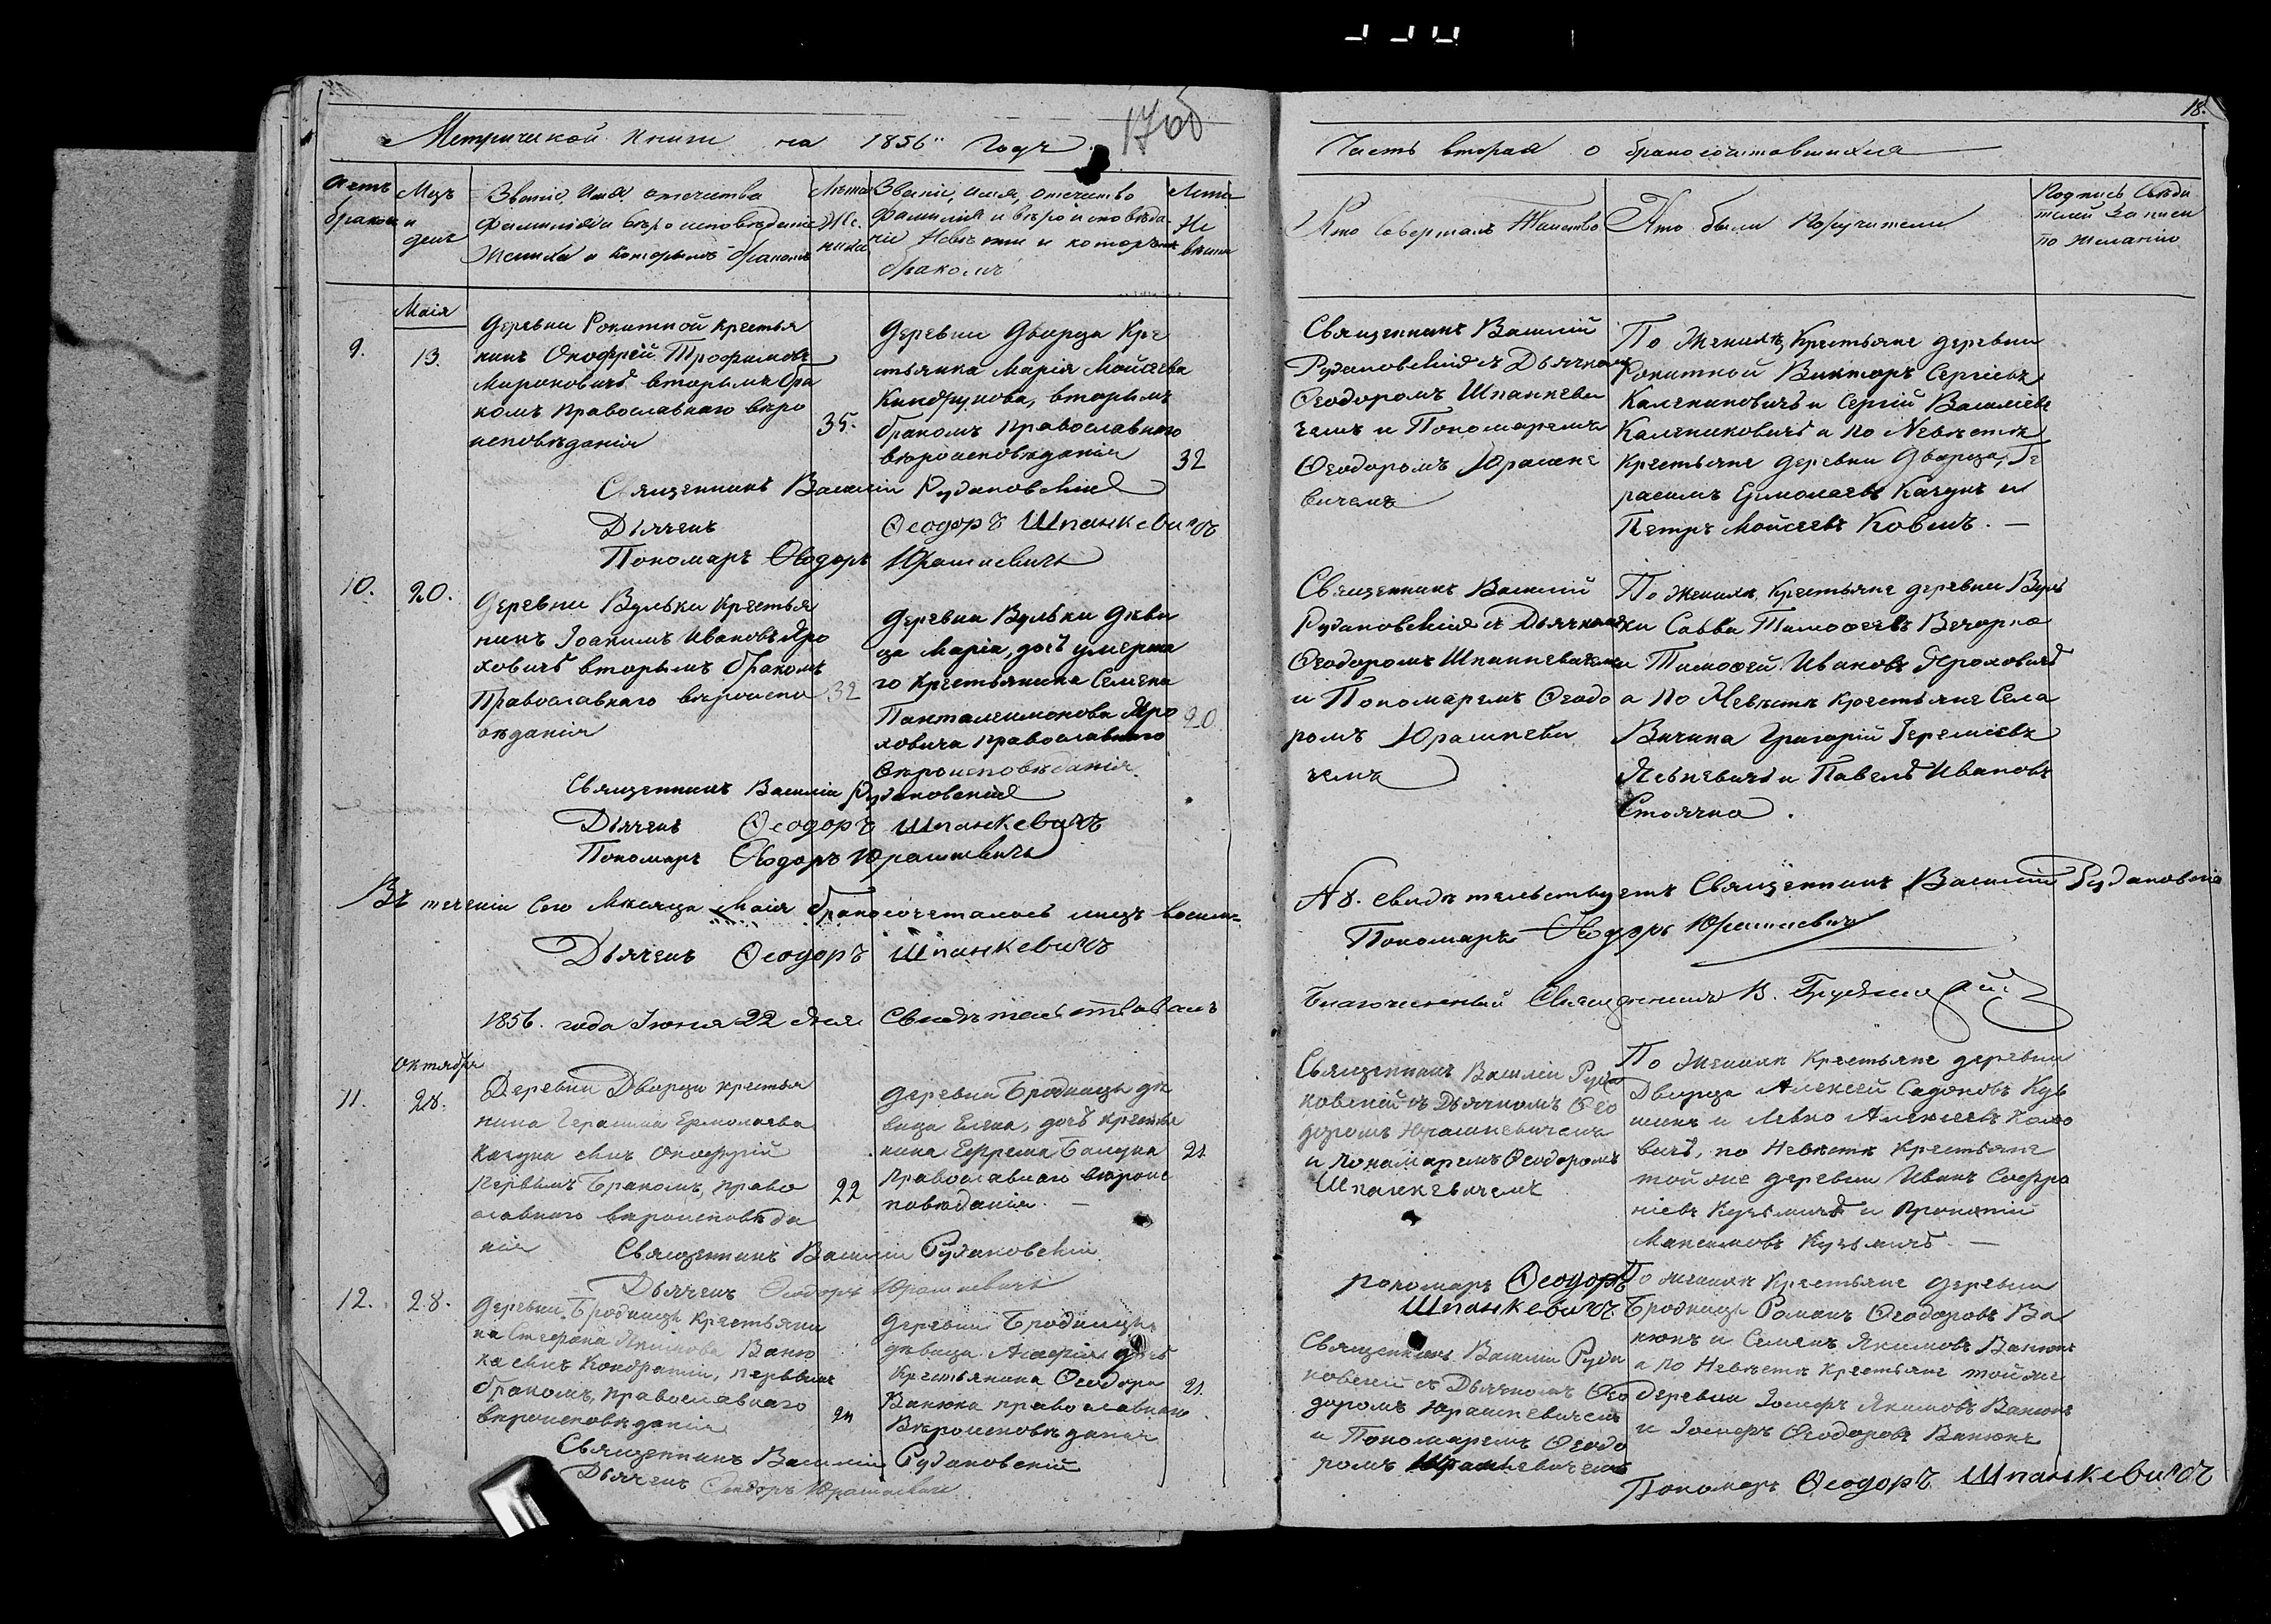 17об
Метрической книги на 1856" Годъ
Счетъ браков
Мцъ и день
Званіе, имя, отчества
фамилія и вѣроисповѣданіе
Жениха и которымъ бракомъ
Лѣта Же-
ниха
Званіе, имя, отчество
фамилія и вѣроисповѣда
ніе Невѣсты и которымъ
бракомъ
Лѣта
Не
вѣсты
Маія
9.
13.
Деревни Рокитной крестья
нинъ Онофрей Трофимовъ
Мироновичъ вторымъ бра
комъ православнаго вѣро
исповѣданія
35.
Деревни Дворца Кре
стьянка Марія Мойсѣева
вторымъ
бракомъ православнаго
вѣроисповѣданія
32
Священникъ Василій Рудаковскій
Дьячекъ Ѳеодоръ Шпанкевичъ
Пономарь Ѳеодоръ Юрашкевичъ
10.
20.
Деревни Вульки крестья
нинъ Іоакимъ Ивановъ Яро
ховичъ вторымъ бракомъ
Православнаго вѣроиспо
вѣданія
32
Деревни Вульки дѣви
ца Марія, дочь умерша
го крестьянина Семена
Панталеимонова Яро
ховича православнаго
вѣроисповѣданія
20.
Священникъ Василій Рудаковскій
Дьячекъ Ѳеодоръ Шпанкевичъ
Пономарь Ѳеодоръ Юрашкевичъ
Въ теченіи сего Мѣсяца Маія бракосочеталось лицъ восемь
Дьячекъ Ѳеодоръ Шпанкевичъ
1856. года Іюня 22 дня Свидѣтельствовалъ
Октября
11.
28.
Деревни Дворца крестья
нина Герасима Ермолаева
Качука сынъ Онофрій
первымъ бракомъ, право
славнаго вѣроисповѣда
нія
22
Деревни Бродницы дѣ
вица Елена, дочь крестья
нина Ефрема
православнаго вѣроис
повѣданія. —
21
Священникъ Василій Рудаковскій
Дьячекъ Ѳеодоръ Юрашкевичъ
12.
28.
Деревни Бродницы крестьяни
на Стефана Якимова Ваню
ка сынъ Кондратій, первымъ
бракомъ, православнаго
вѣроисповѣданія
24
Деревни Бродницы
дѣвица Агафія дочь
крестьянина Ѳеодора
Ванюка православнаго
Вѣроисповѣданія
21.
Священникъ Василій Рудаковскій
Дьячекъ Ѳеодоръ Юрашкевичъ
18.
Часть вторая о бракосочетавшихся
Кто совершалъ Таинство
Кто были Поручители
Подпись свѣдѣ
телей записи
по желанію
Священникъ Василій
Рудаковскій съ Дьячкомъ
Ѳеодоромъ Шпанкеви
чемъ и Пономаремъ
Ѳеодоромъ Юрашке
вичемъ
По Женихѣ Крестьяне деревни
Рокитной Викторъ Сергіевъ
Калениковичъ и Сергій Васильевъ
Калениковичъ а по Невѣстѣ
крестьяне деревни Дворца, Ге
расимъ Ермолаевъ Качукъ и
Петръ Мойсеевъ —
Священникъ Василій
Рудаковскій съ Дьячкомъ
Ѳеодоромъ Шпанкевичемъ
и Пономаремъ Ѳеодо
ромъ Юрашкеви
чемъ
По Женихѣ, Крестьяне деревни Вуль
ки Савва Тимофеевъ Вечорко
и Тимофей Ивановъ Ероховичъ
а по Невѣстѣ крестьяне Села
Вичина Григорій Іереміевъ
и Павелъ Ивановъ
Стоячко.
№ 8. Свидѣтельствуетъ Священникъ Василій Рудаковскій
Пономарь Ѳеодоръ Юрашкевичъ
Благочинный Священникъ В.
Священникъ Василій Руда
ковскій съ Дьячкомъ Ѳео
доромъ Юрашкевичемъ
и Пономаремъ Ѳеодоромъ
Шпанкевичемъ
По Женихѣ Крестьяне деревни
Дворца Алексей
и Левко Алексеевъ
по Невѣстѣ крестьяне
той же деревни Иванъ Софро
ніевъ Кузьмичъ и
Максимовъ Кузьмичъ —
Пономарь Ѳеодоръ
Шпанкевичъ
Священникъ Василій Руда
ковскій съ Дьячкомъ Ѳео
доромъ Юрашкевичемъ
и Пономаремъ Ѳеодо
ромъ
По женихѣ Крестьяне деревни
Бродницы Романъ Ѳеодоровъ Ва
нюкъ и Семенъ Якимовъ Ванюкъ
а по Невѣстѣ Крестьяне той же
деревни Іосифъ Якимовъ Ванюкъ
и Іосифъ Ѳеодоровъ Ванюкъ
Пономарь Ѳеодоръ Шпанкевичъ